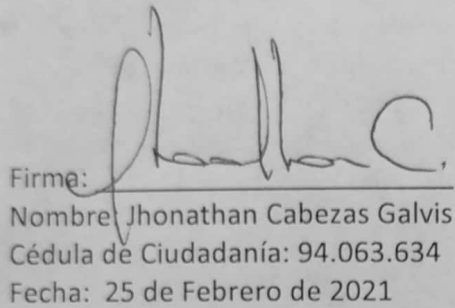 Firma:
Nombre: Jhonathan Cabezas Galvis
Cédula de Ciudadanía: 94.063.634
Fecha: 25 de Febrero de 2021